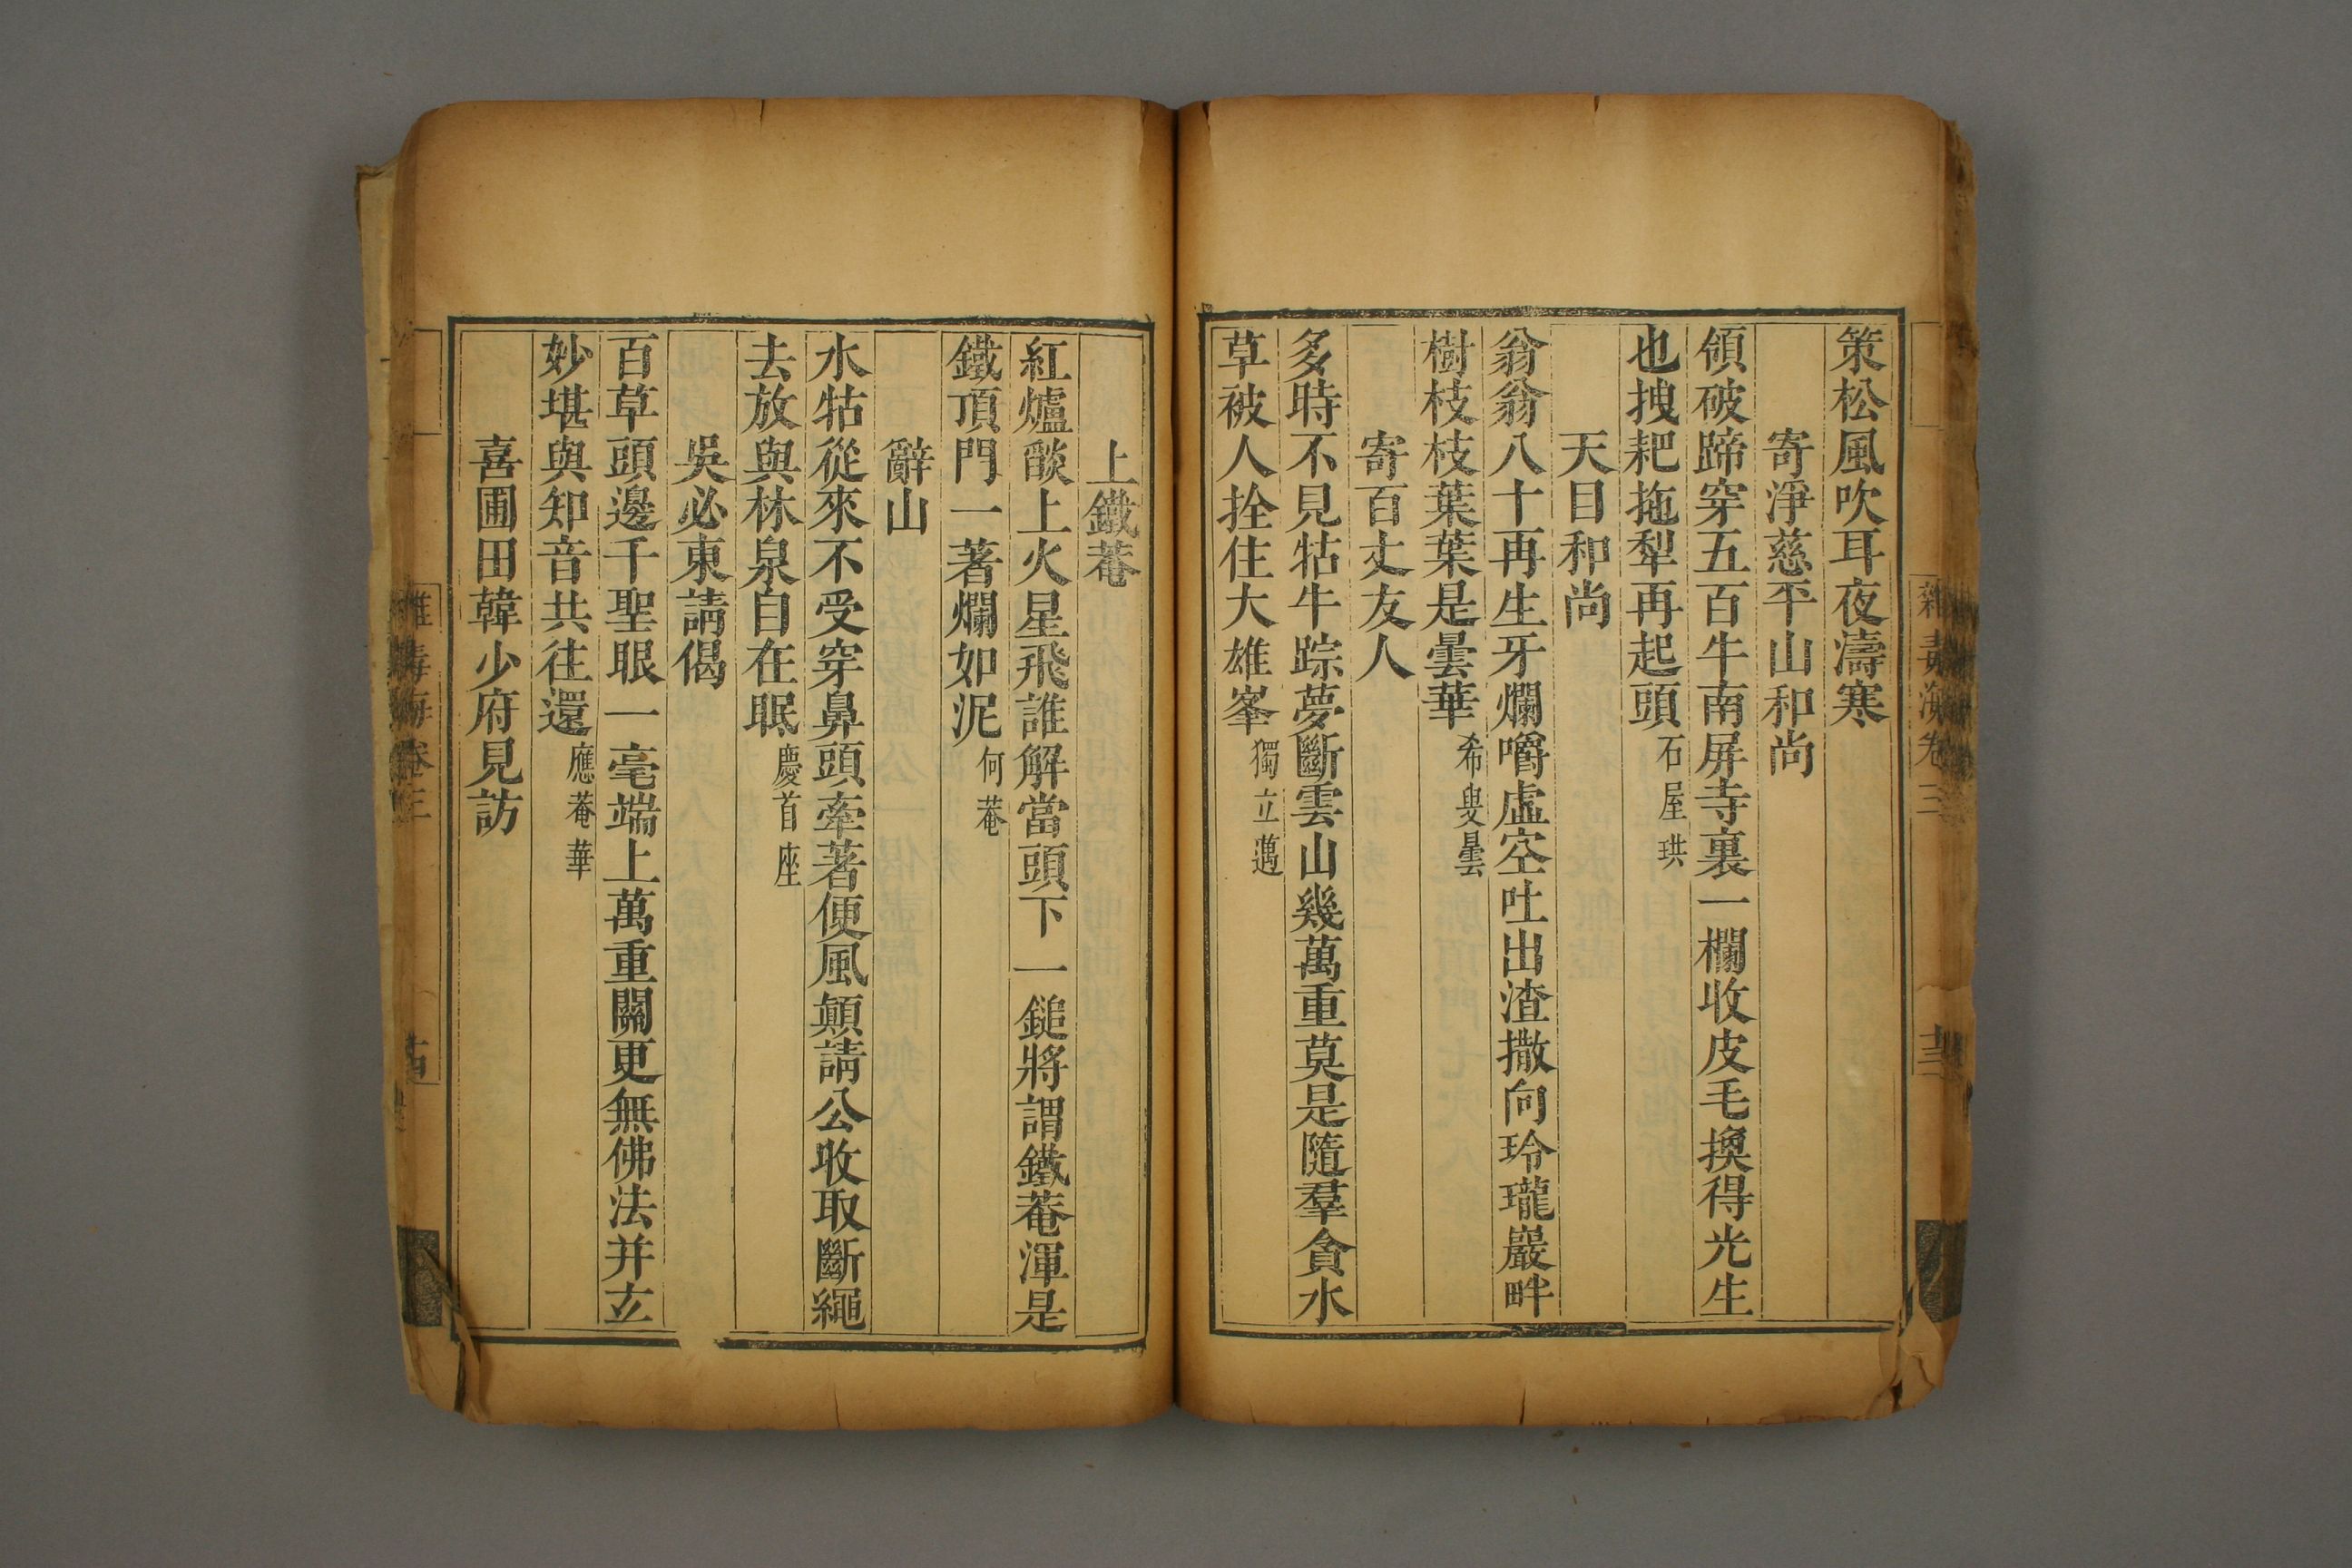 策松風吹耳夜濤寒
寄淨慈平山和尚
領破蹄穿五百牛南屏寺裏一欄收皮毛換得光生
也拽耙拖犁再起頭石屋珙
天目和尚
翁翁八十再生牙爛嚼虛空吐出渣撒向玲瓏巖畔
樹枝枝葉葉是曇華希叟曇
寄百丈友人
多時不見牯牛踪夢斷雲山幾萬重莫是隨羣貪水
草被人拴住大雄峯獨立邁
上鐵菴
紅爐燄上火星飛誰解當頭下一鎚將謂鐵菴渾是
鐵頂門一著爛如泥何菴
辭山
水牯從來不受穿鼻頭牽著便風顛請公收取斷繩
去放與林泉自在眠慶首座
吳必東請偈
百草頭邊千聖眼一毫端上萬重關更無佛法并玄
妙堪與知音共往還應菴華
喜圃田韓少府見訪
雜毒海卷三